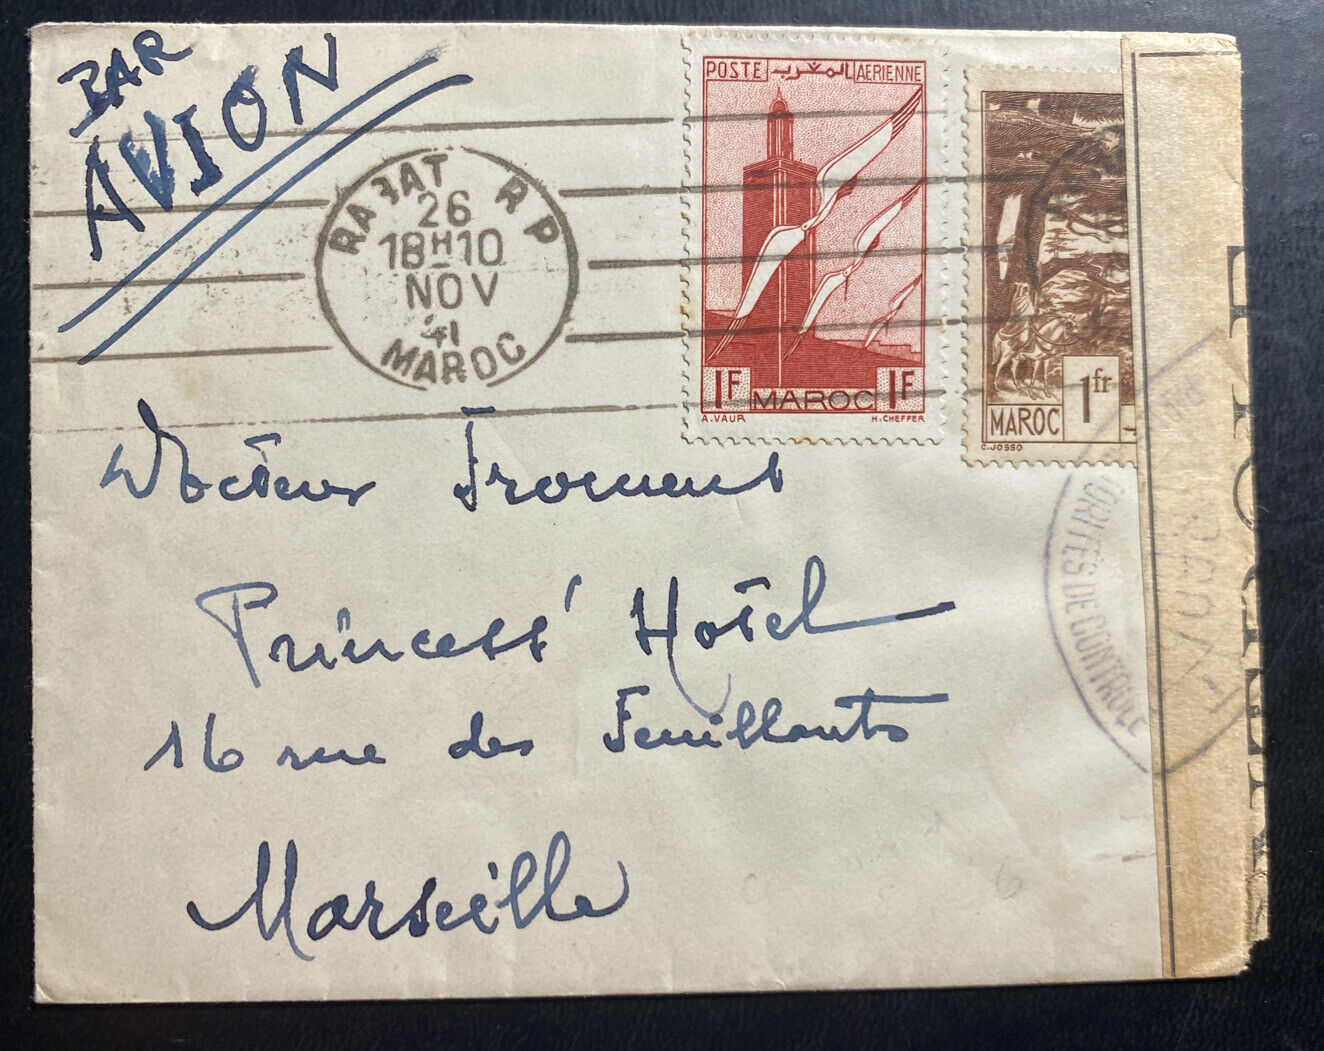 PAR
AVION
RABAT R P
26
18H10
NOV
41
MAROC
POSTE المغرب AERIENNE
1F MAROC 1F
A. VAUR H. CHEFFER
MAROC 1fr
C. JOSSO
Docteur Froment
Princess' Hotel
16 rue des Feuillants
Marseille
ORITÉS DE CONTROLE